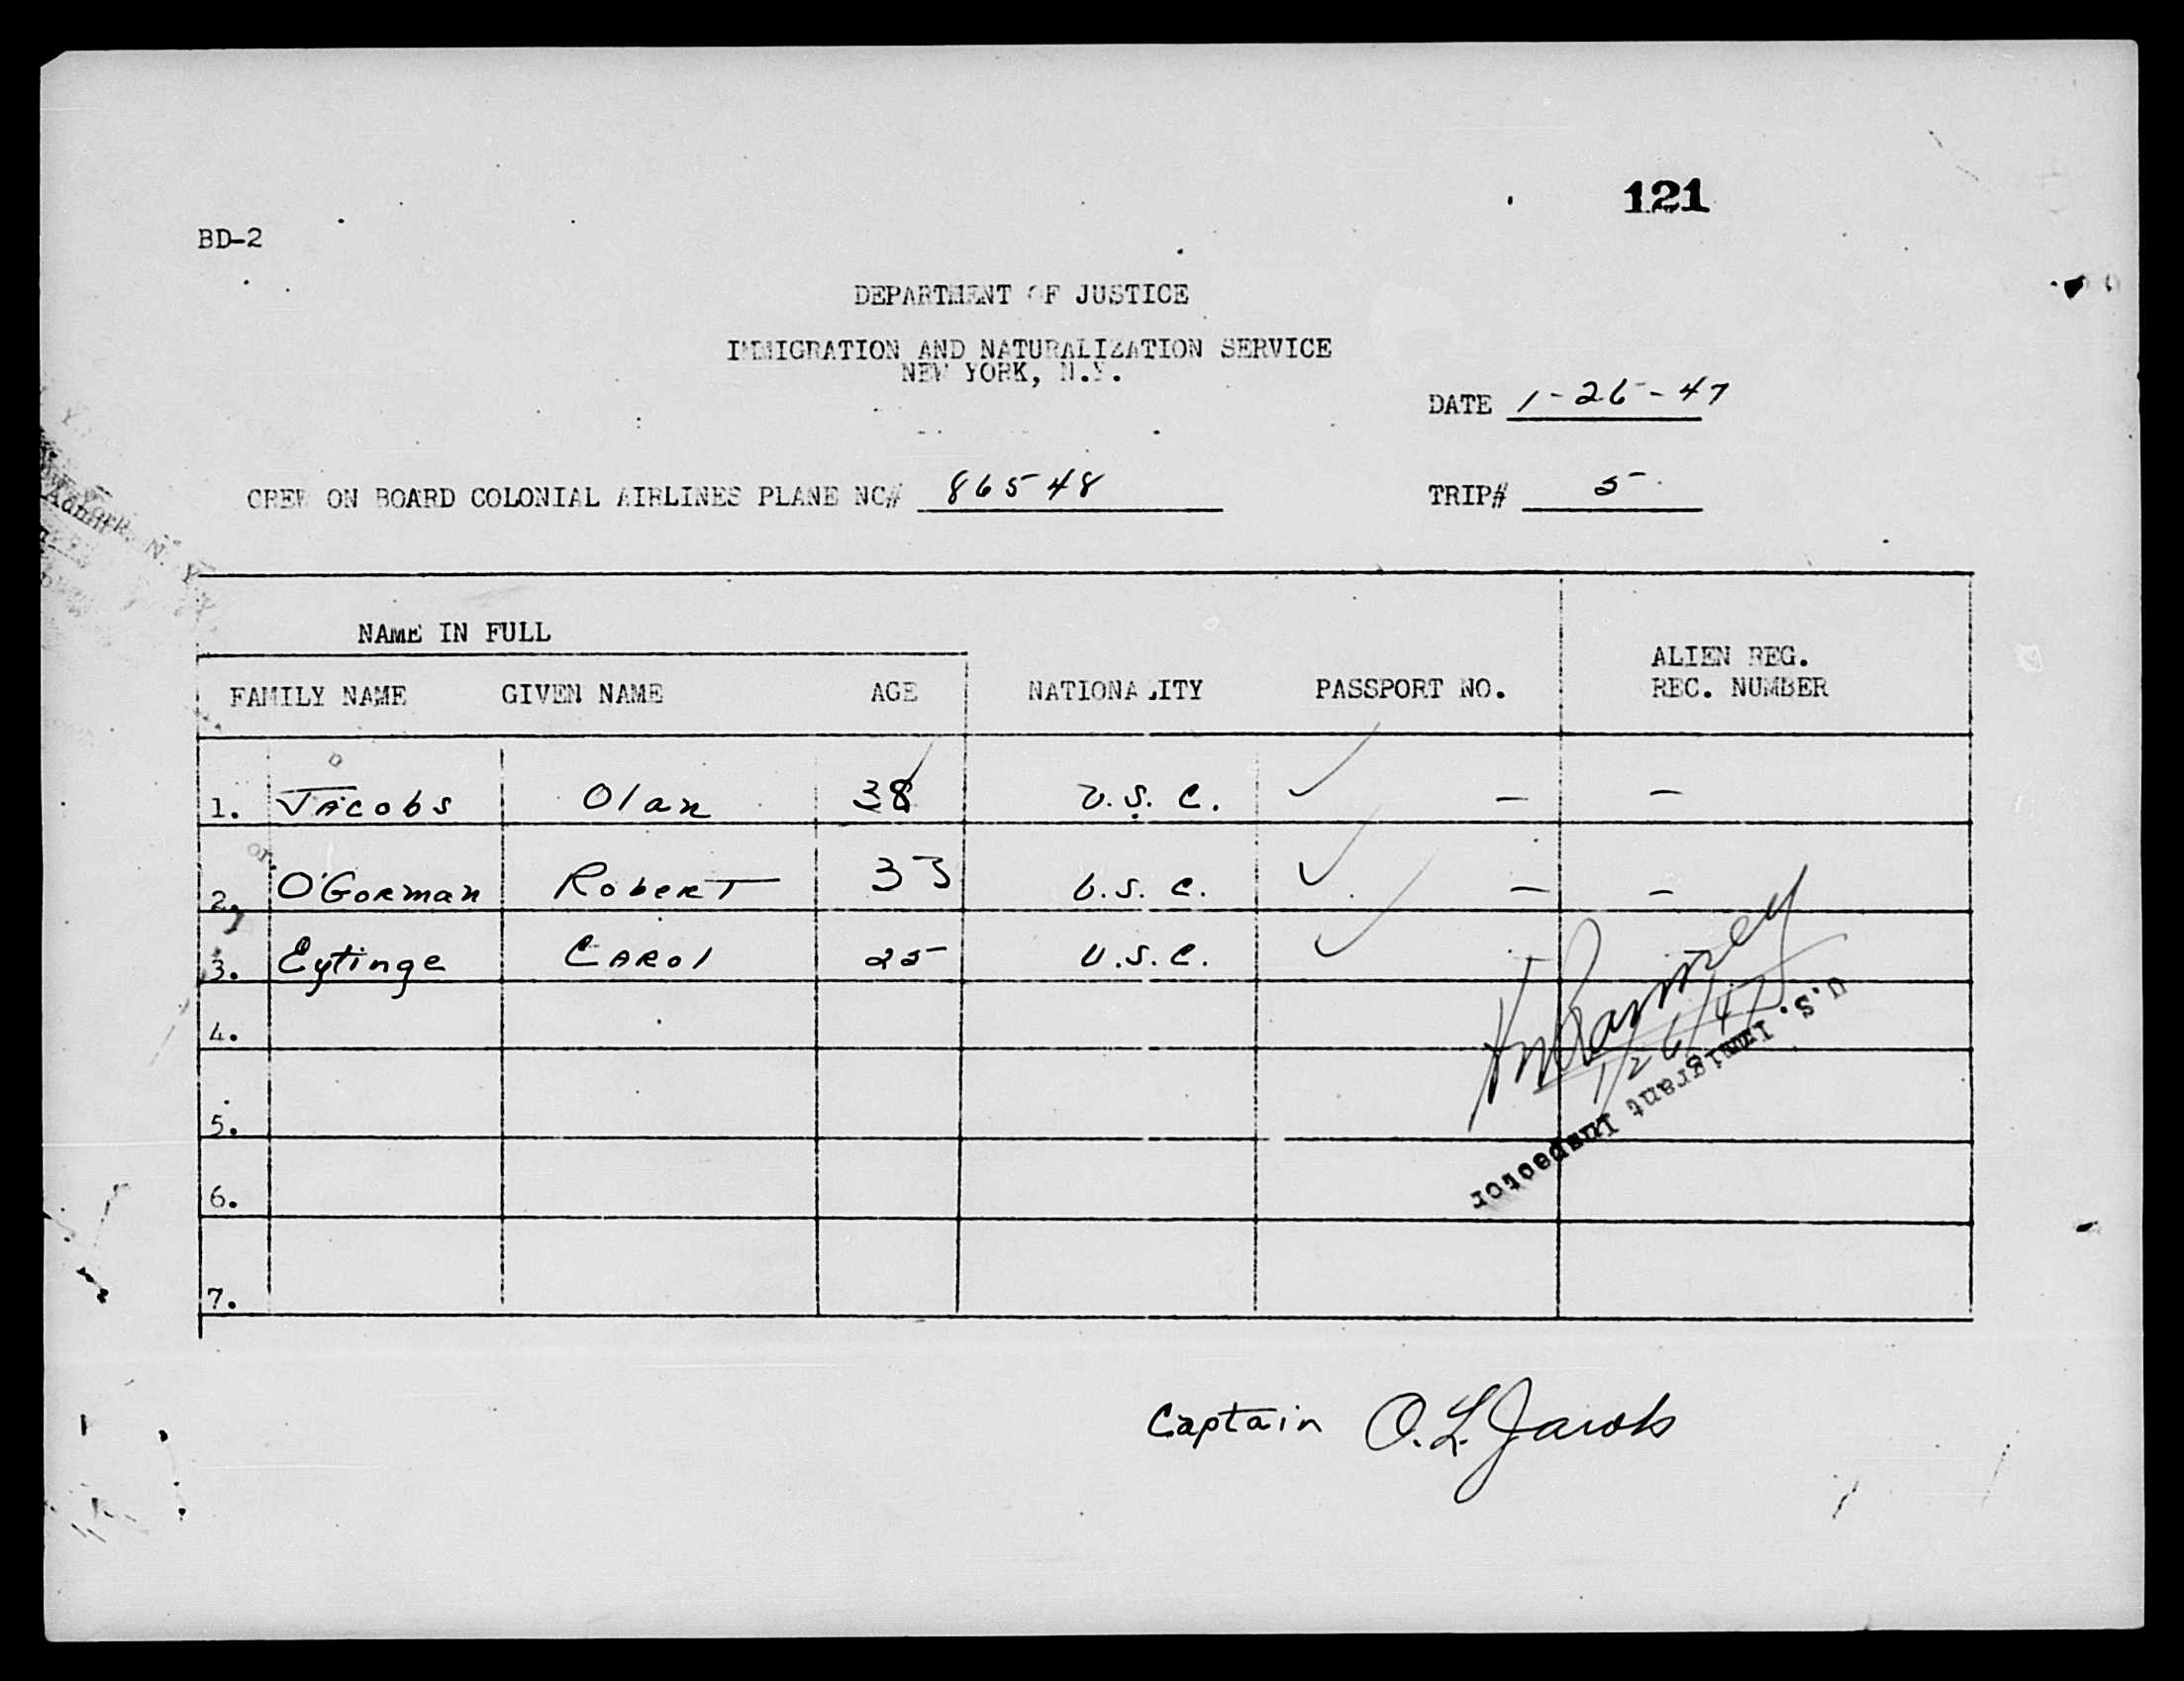 121
BD-2
DEPARTMENT OF JUSTICE
IMMIGRATION AND NATURALIZATION SERVICE
NEW YORK, N.Y.
DATE 1-26-47
CREW ON BOARD COLONIAL AIRLINES PLANE NC# 86548 TRIP# 5
NAME IN FULL
ALIEN REG.
FAMILY NAME GIVEN NAME AGE NATIONALITY PASSPORT NO. REC. NUMBER
1. Jacobs Olan 38 U.S.C. ✓ — —
2. O'Gorman Robert 33 U.S.C. ✓ — —
3. Eytinge Carol 25 U.S.C. ✓
1/26/47
U.S. Immigrant Inspector
4.
5.
6.
7.
Captain O.L. Jacobs